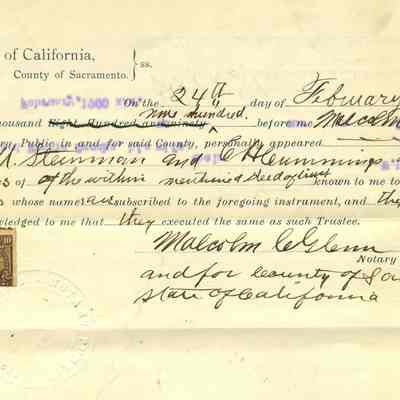 of California,
County of Sacramento. } ss.
February, 1900
On the 24th day of February
nine hundred
thousand Eight Hundred and ninety before me Malcolm
ry Public in and for said County, personally appeared
Steinman and C H Cummings
s of of the within mentioned deed of trust known to me to
s whose names are subscribed to the foregoing instrument, and the
ledged to me that they executed the same as such Trustee.
Malcolm C Glenn
Notary
and for County of Sa
State of California